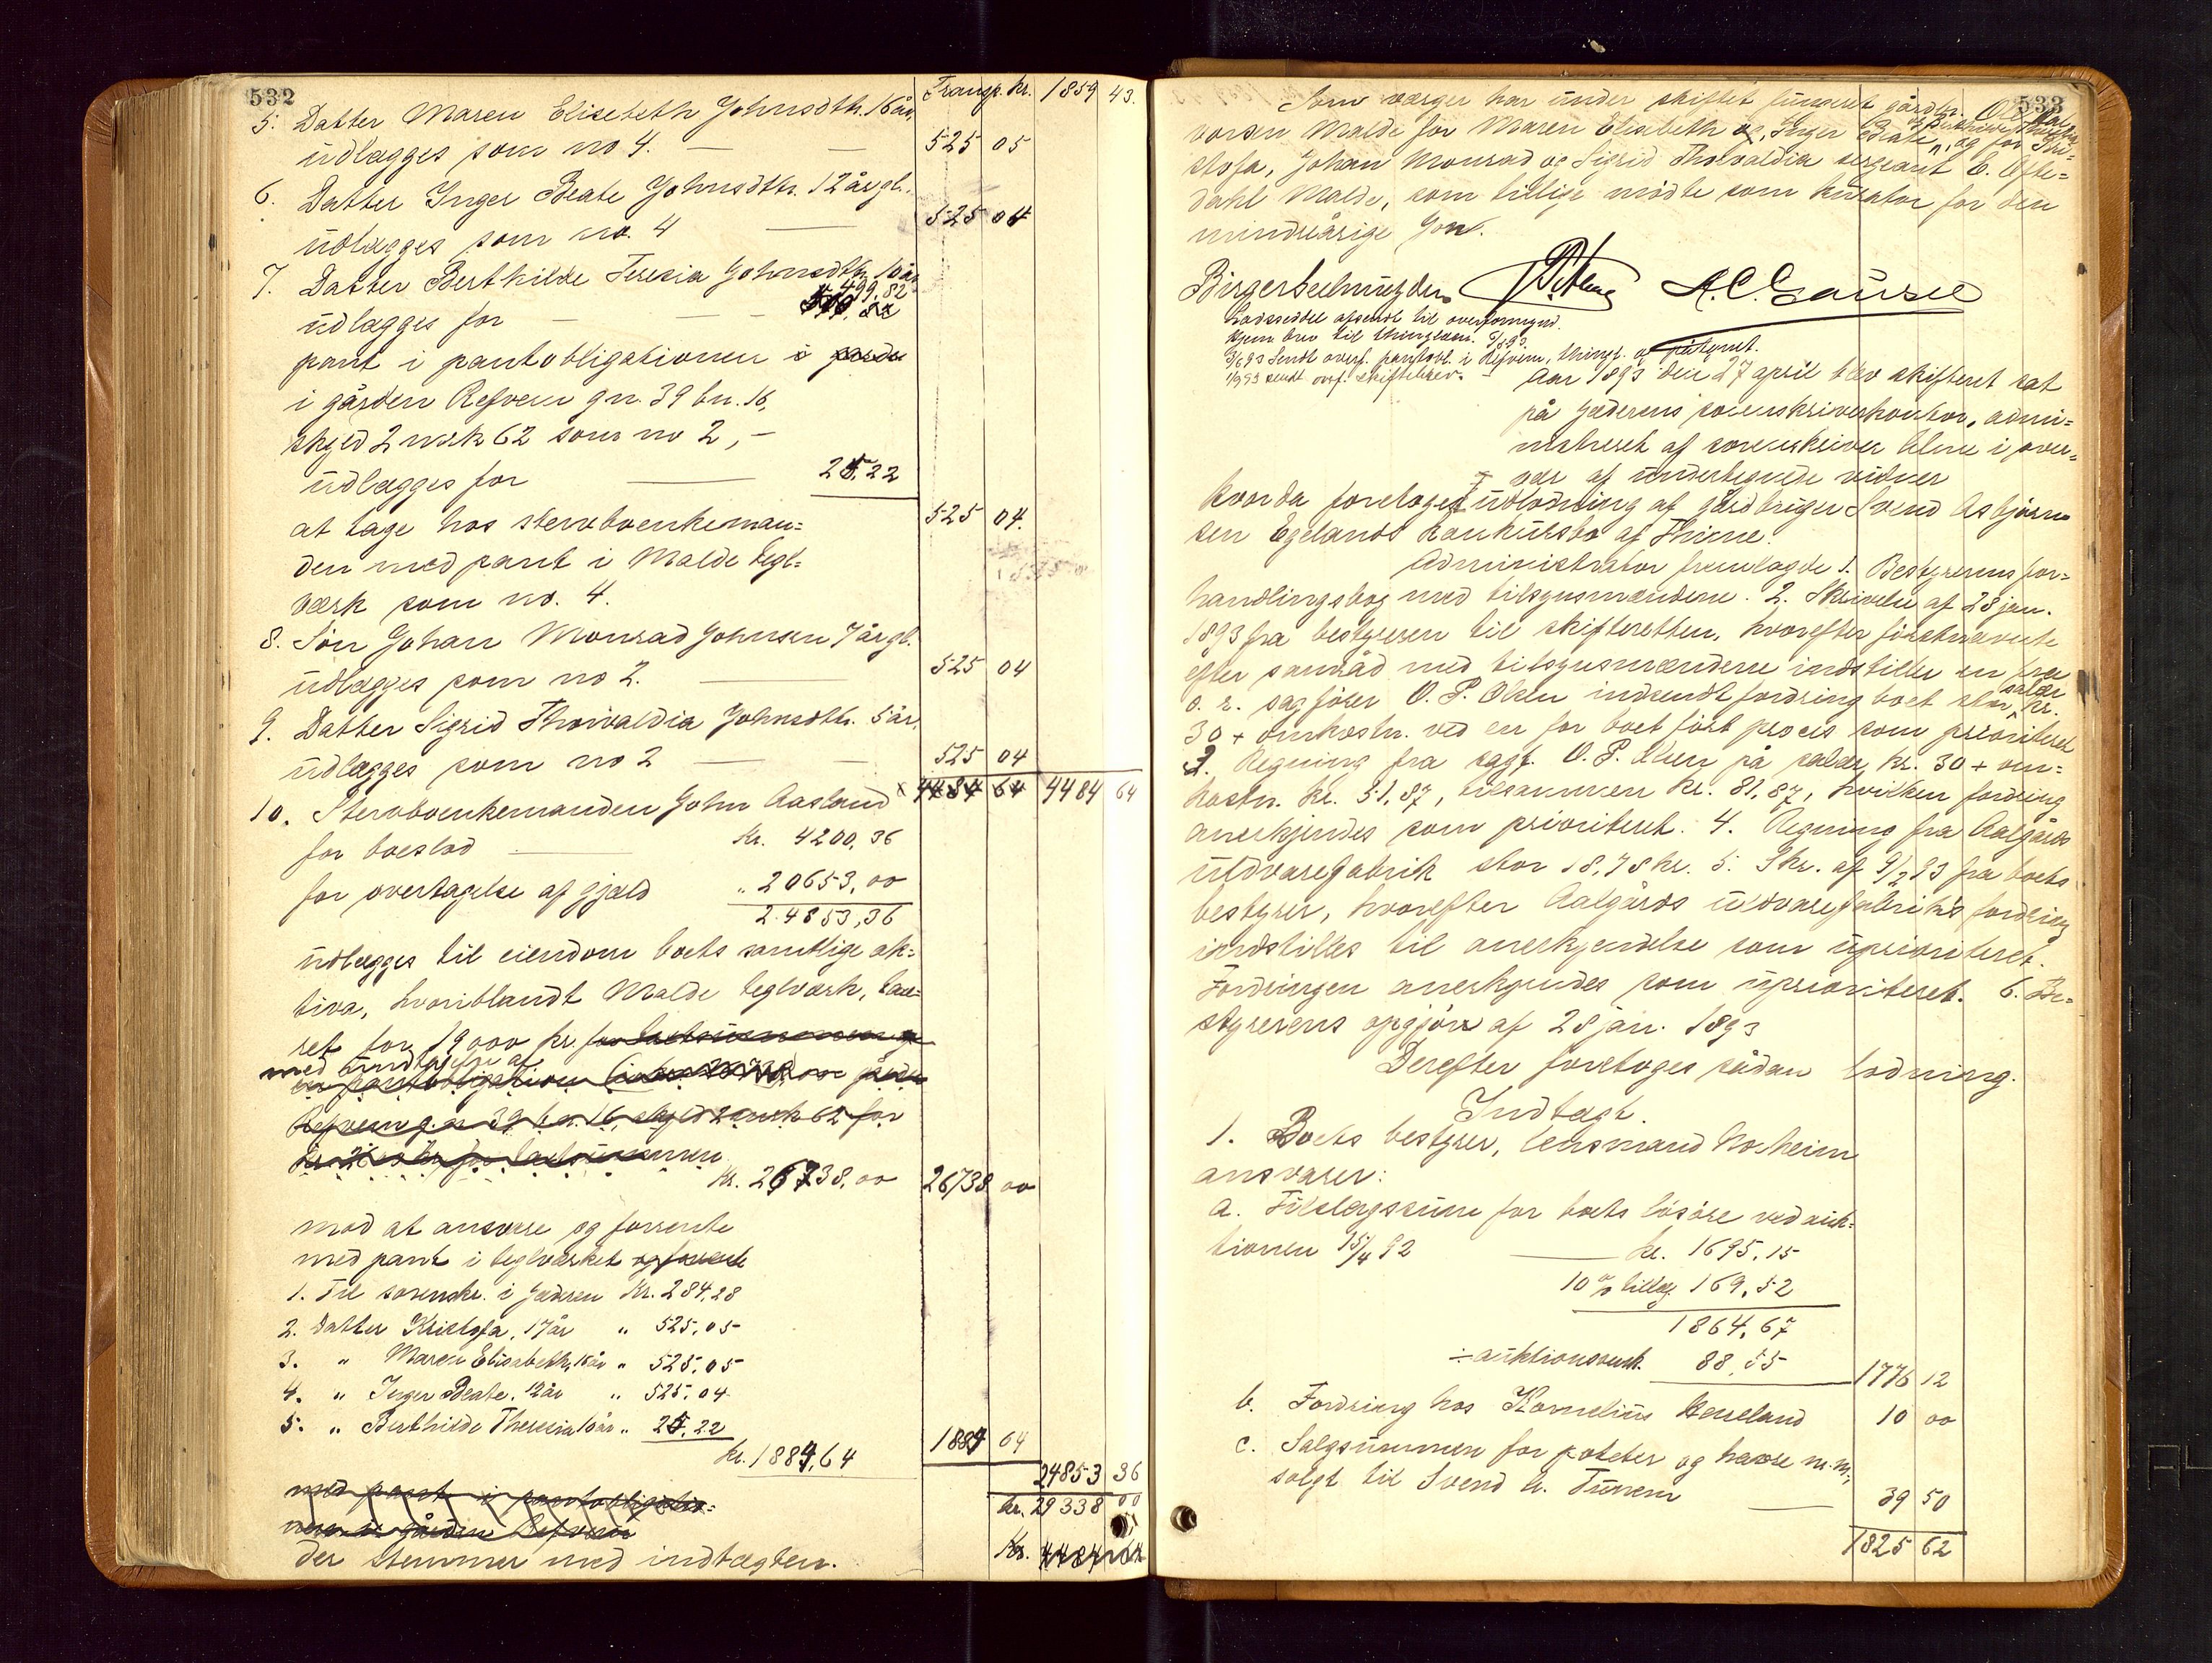 532
Transp. kr. 1859 43.
5. Datter Maren Elisebeth Johnsdtr. 16 år,
udlægges som no 4. — — 525 05
6. Datter Inger Beate Johnsdtr. 12 år gl.
udlægges som no. 4 — 525 04
7. Datter Berthilde Teresia Johnsdtr. 10 år
udlægges for — — — 499,82
pant i pantobligationen i
i gården Refven gn. 39 bn. 16,
skyld 2 mrk 62 som no 2, —
udlægges for — 25,22
at tage hos stervboenkeman= 525 04.
den med pant i Malde tegl=
værk som no. 4.
8. Søn Johan Monrad Johnsen 7 år gl.
udlægges som no 2. — 525 04
9. Datter Sigrid Thorvaldia Johnsdtr. 5 år,
udlægges som no 2 — — 525 04
10. Stervboenkemanden John Aasland 4484 64 4484 64
for boeslod — Kr. 4200,36
for overtagelse af gjæld „ 20653,00
24853,36
udlægges til eiendom boets samtlige ak=
tiva, hvoriblandt Malde teglværk, tax=
ret for 19000 kr for
med undtagelse af
en pantobligation
Refven gn 39 bn. 16, skyld 2 mrk 62 for
Kr. 26738,00 26738 00
mod at ansvare og forrente
med pant i teglværket og forrente
1. Til sorenskr. i Jæderen Kr. 284,28
2. Datter Kristofa, 17 år „ 525,05
3. „ Maren Elisabeth, 16 år „ 525,05
4. „ Inger Beate, 12 år „ 525,04
5. „ Berthilde Theresia 10 år „ 25,22
kr. 1884,64 1884 64
24853 36
med pant i pantobligatio=
nen i gården Refven kr. 29338 00
der stemmer med indtægten. Kr. 4484 64
533
Som værger har under skiftet fungeret gårdbr. Ole Hal
vorsen Malde for Maren Elisabeth og Inger Beate, og for Kri=
stofa, Johan Monrad og Sigrid Thorvaldia sergeant E. Efte=
dahl Malde, som tillige mødte som kurator for den
mindreårige Jon.
A. C. Gausel
Lodseddel afsendt til overformynd.
Aar 1893 den 27 april blev skifteret sat
på Jæderens sorenskriverkontor, admi=
nistreret af sorenskriver Alme i over=
vær af undertegnede vidner
hvorda foretoges udlodning af gårdbruger Svend Asbjørn
sen Egelands konkursbo af Thime.
Administrator fremlagde 1. Bestyrerens for=
handlingsbog med tilsynsmændene. 2. Skrivelse af 28 jan.
1893 fra bestyreren til skifteretten, hvorefter førstnævnte
efter samråd med tilsynsmændene indstiller en fra
o. r. sagfører O. P. Olsen indsendt fordring boet stor, salær kr.
30 + omkostn. ved en for boet ført proces som prioriteret
3. Regning fra sagf. O. P. Olsen på salær kr. 30 + om=
kostn. kr. 51,87, tilsammen kr. 81,87, hvilken fordring
anerkjendes som prioriteret. 4. Regning fra Aalgårds
uldvarefabrik stor 18,78 kr. 5. Skr. af 9/2 93 fra boets
bestyrer, hvorefter Aalgårds uldvarefabriks fordring
indstilles til anerkjendelse som uprioriteret.
Fordringen anerkjendes som uprioriteret. 6. Be=
styrerens opgjør af 28 jan. 1893
Derefter foretoges sådan lodning.
Indtægt.
1. Boets bestyrer, lensmand Norheim
ansvarer:
a. Tilslagssum for boets løsøre ved auk=
tionen 15/4 92 — kr. 1695,15
10 % tillæg 169,52
1864,67
÷ auktionsomk. 88,55 1776 12
b. Fordring hos Kornelius Herreland 10 00
c. Salgssummen for poteter og havre m. m.,
solgt til Svend A. Tunem — 39 50
1825 62